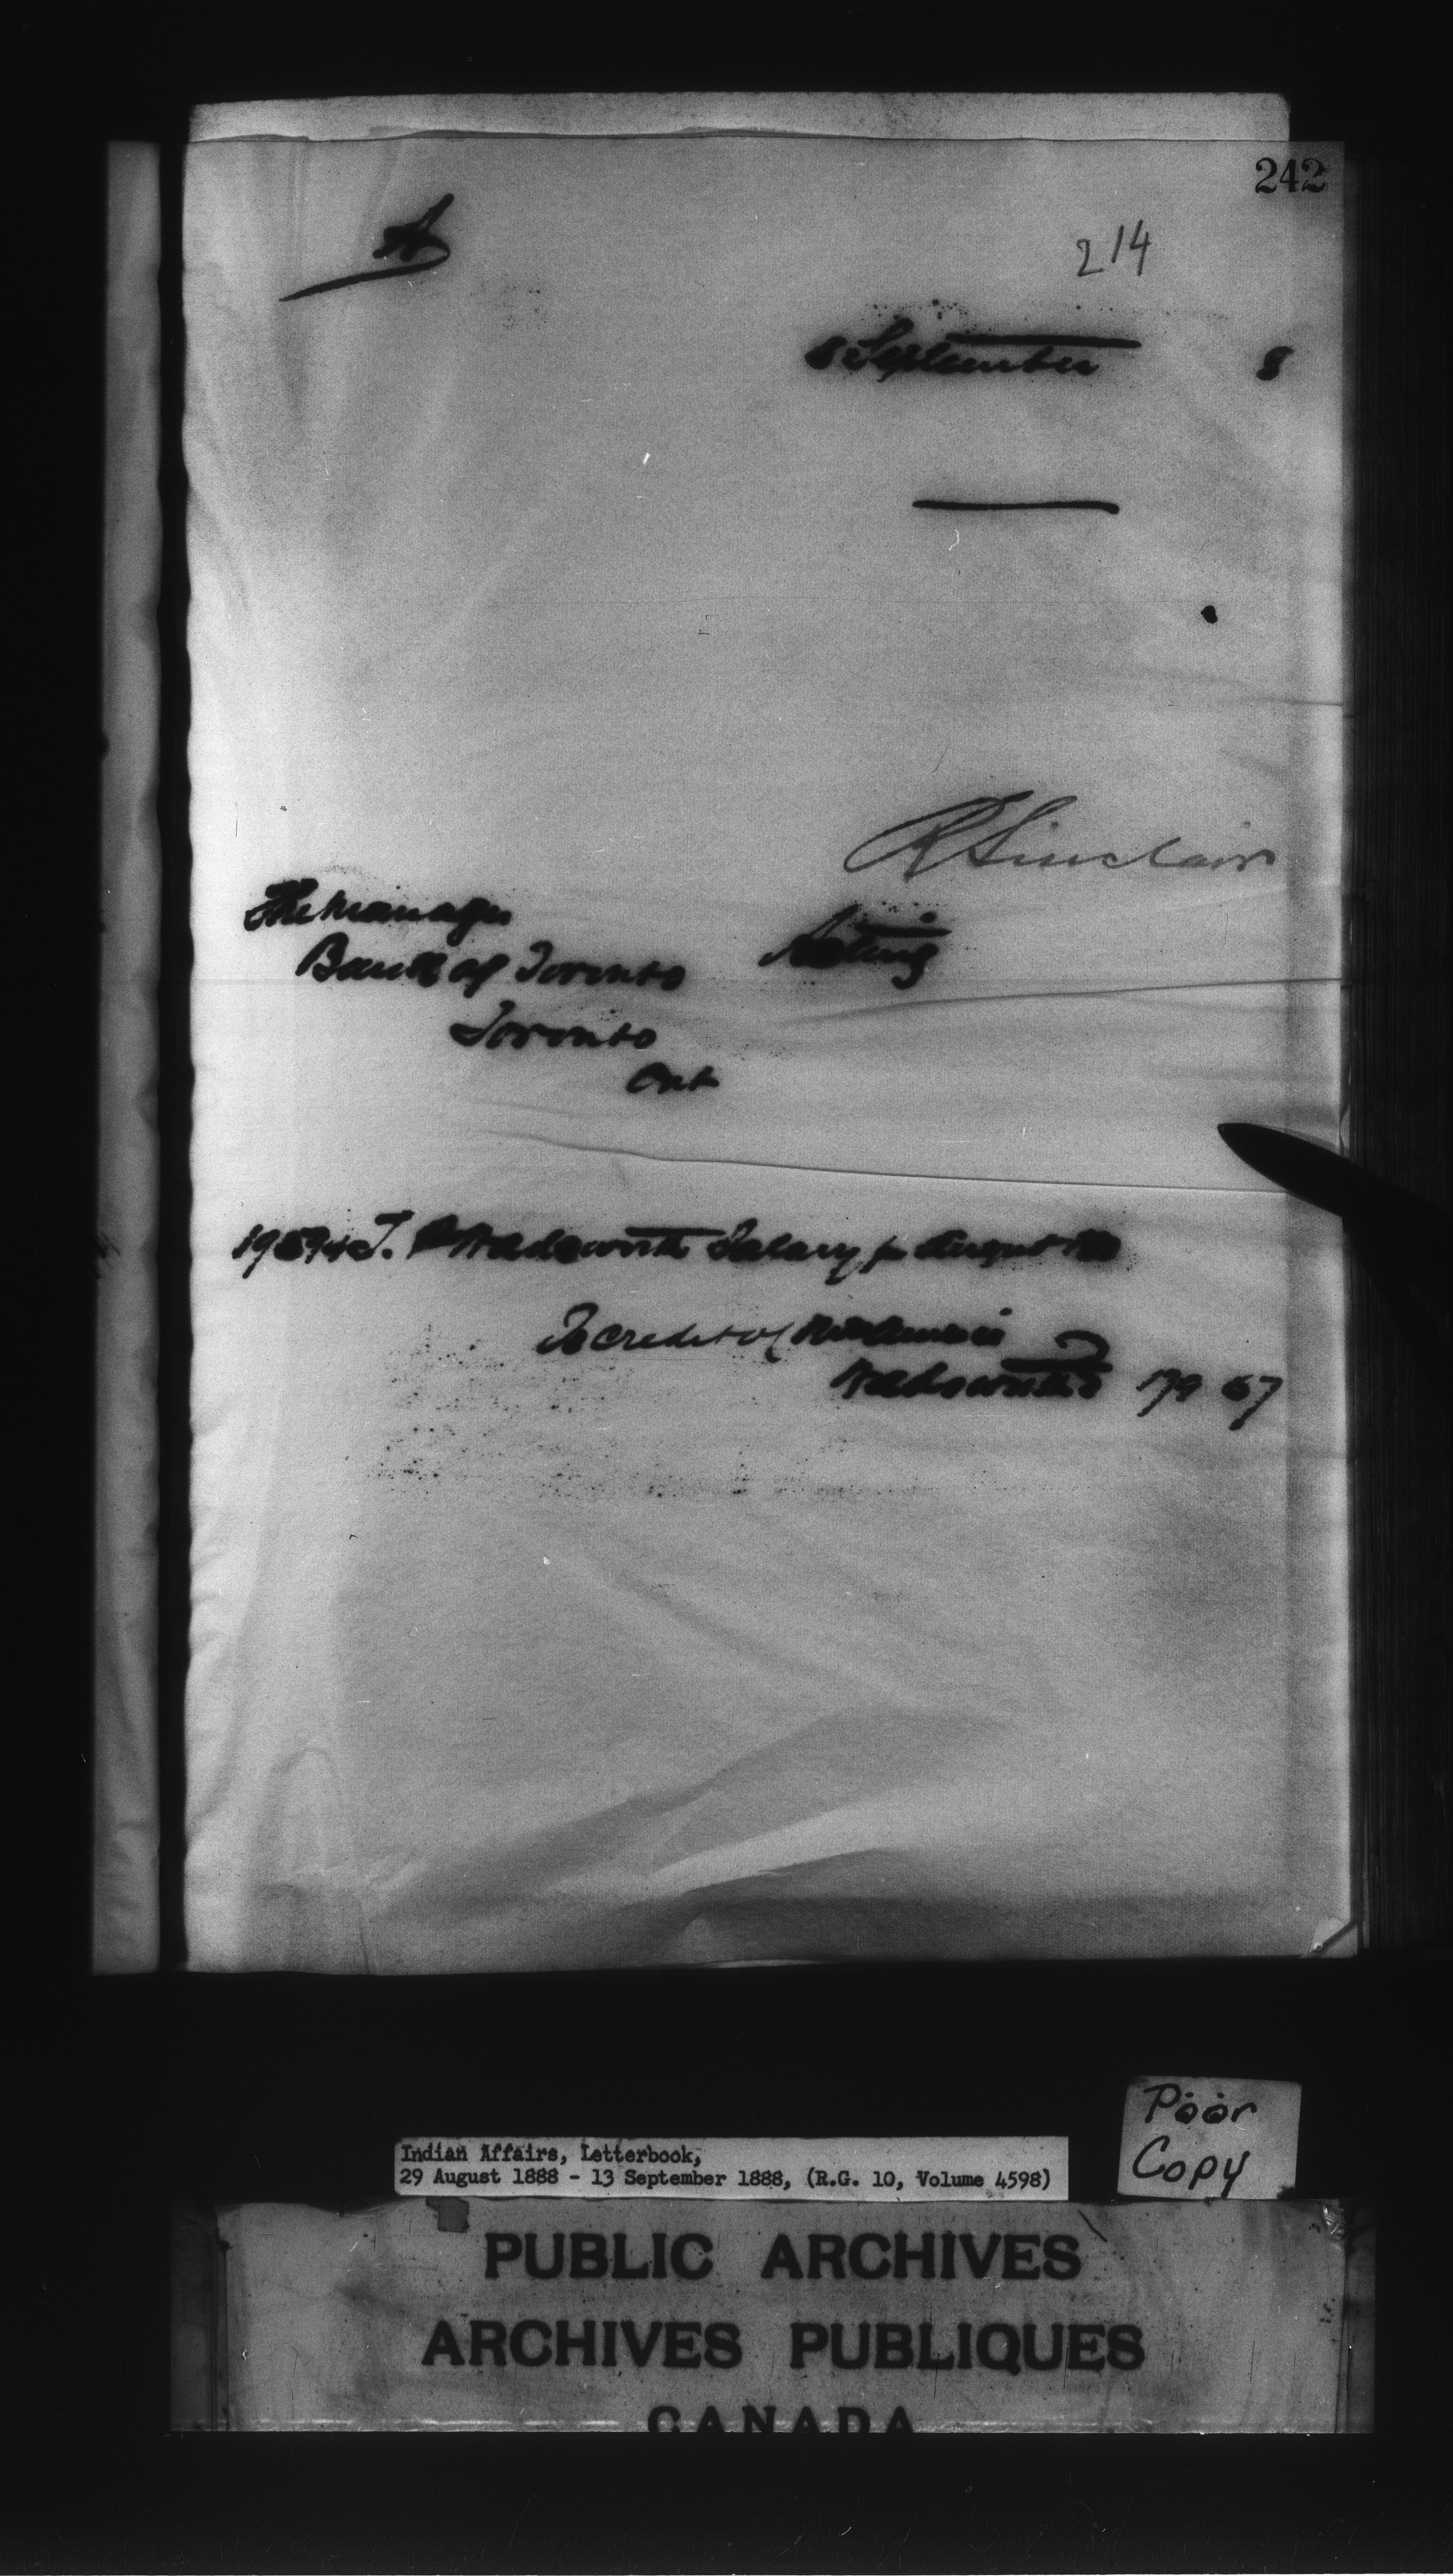 242
A
214
September 8
R Sinclair
The Manager
Acting
Bank of Toronto
Toronto
Ont
T. P Wadsworth Salary for August
To credit of
Wadsworth 179 67
Poor
Copy
Indian Affairs, Letterbook,
29 August 1888 - 13 September 1888, (R.G. 10, Volume 4598)
PUBLIC ARCHIVES
ARCHIVES PUBLIQUES
CANADA